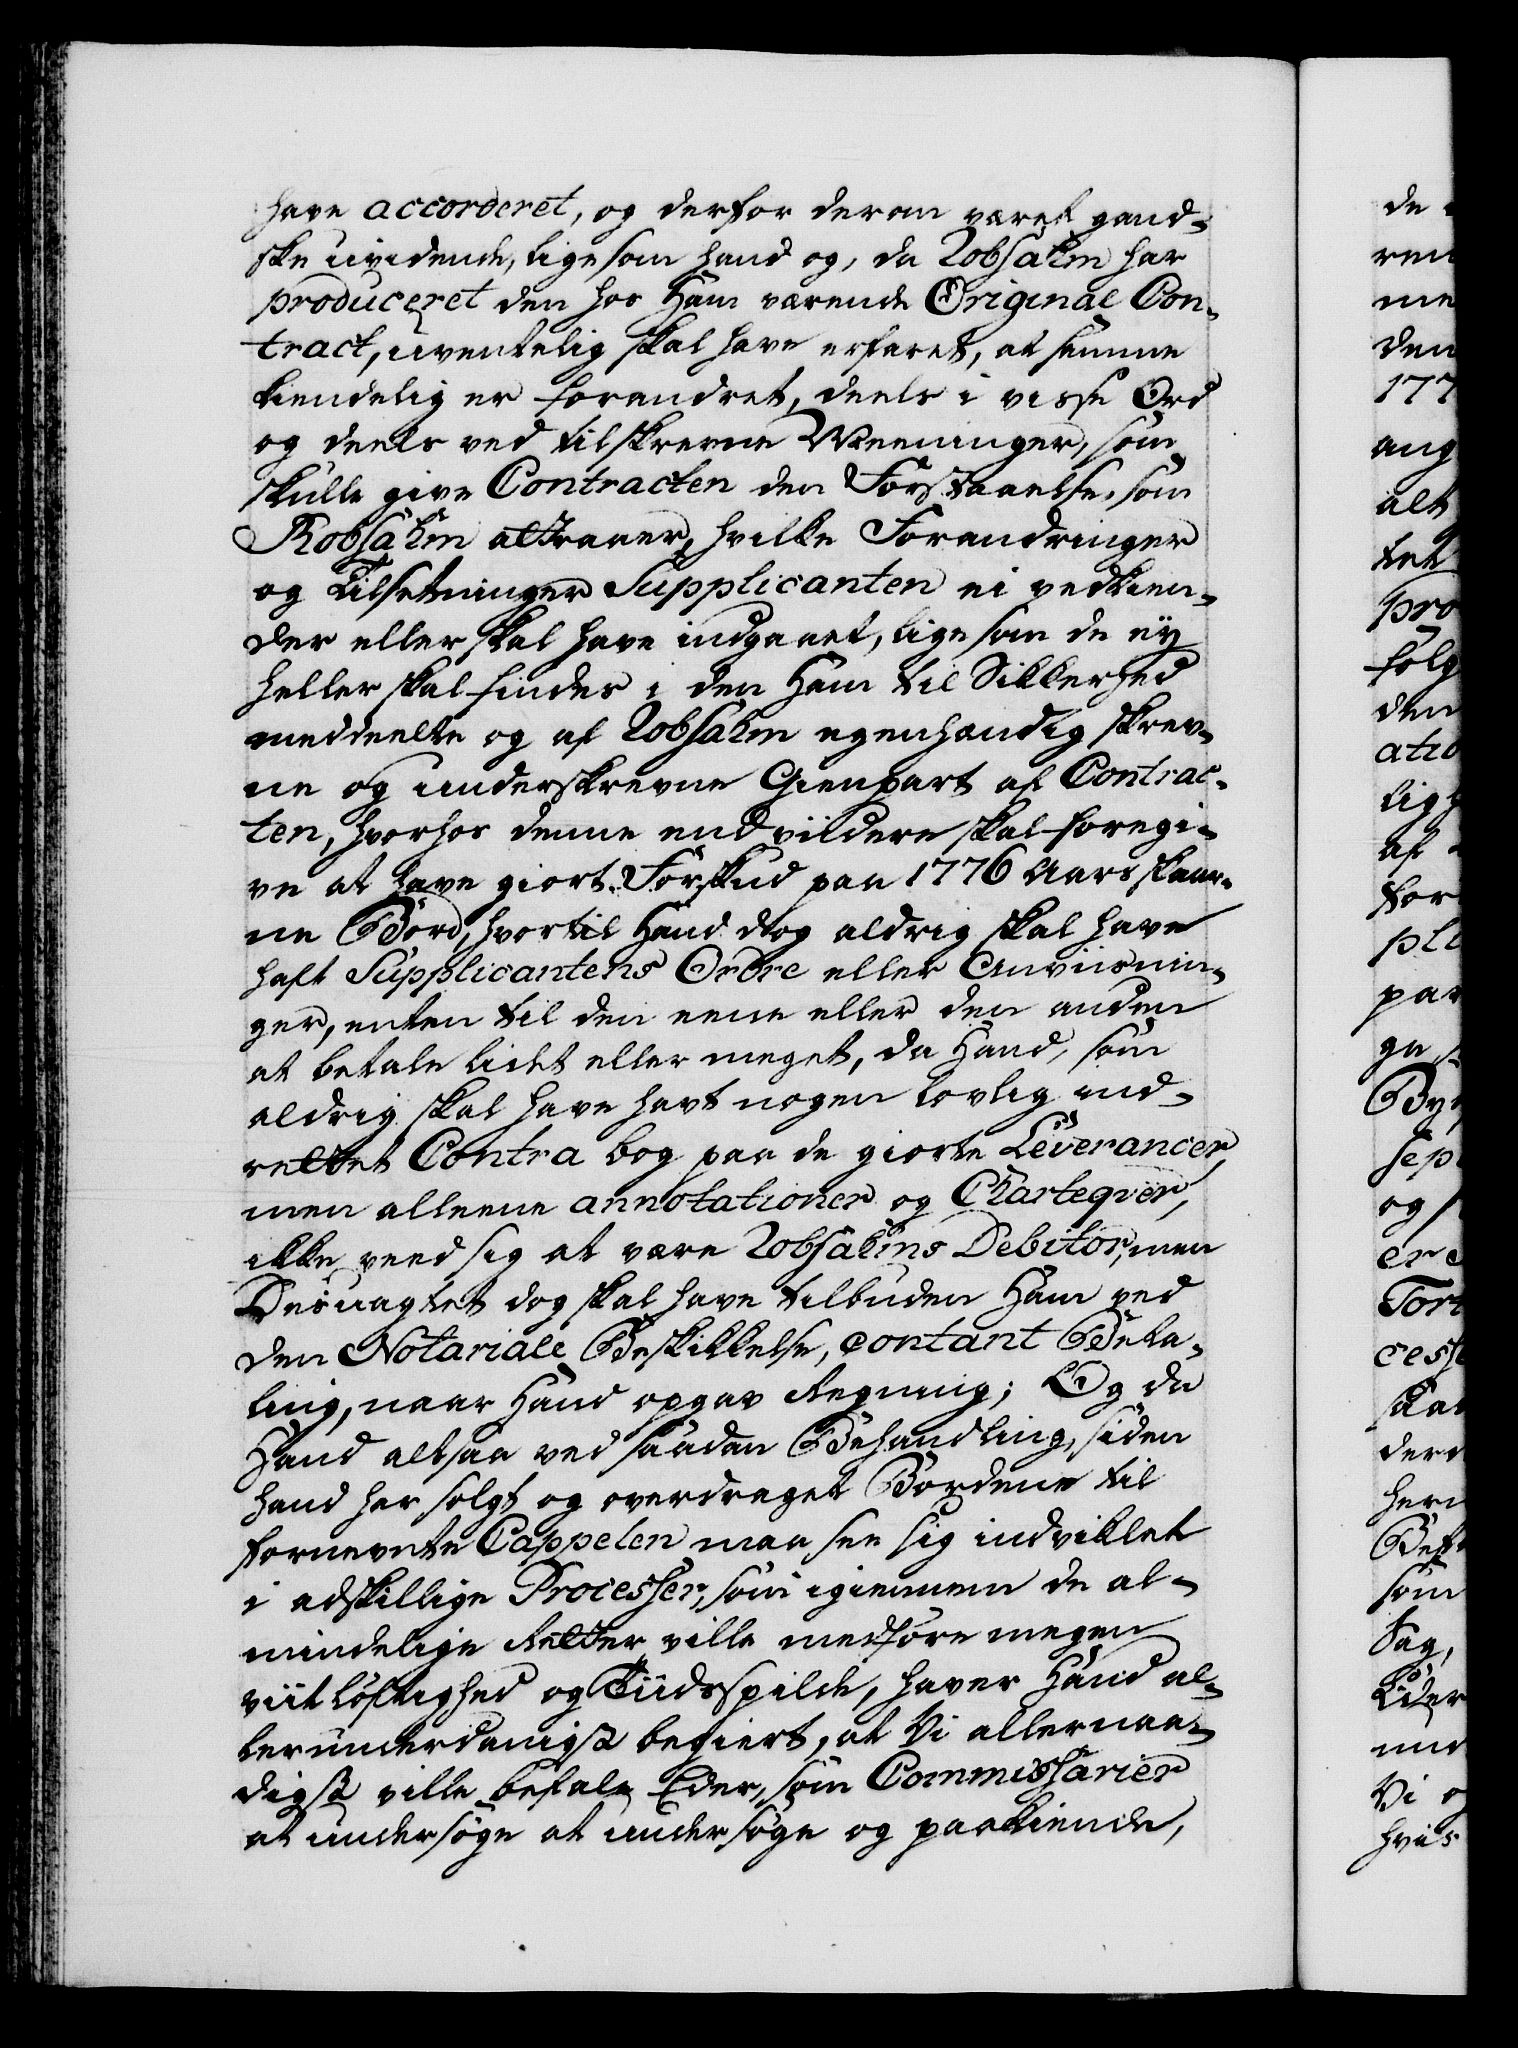 have accorderet, og derfor derom været gand-
ske uvidende, ligesom hand og, da Robsahm har
produceret den hos Ham værende Original Con-
tract, uventelig skal have erfaret, at samme
kiendelig er forandret, deels i visse Ord
og deels ved tilskrevne Meeninger, som
skulle give Contracten den Forstaaelse, som
Robsahm attraaer, hvilke Forandringer
og Tilsetninger Supplicanten ei vedkien-
der eller skal have indgaaet, ligesom de ey
heller skal findes i den Ham til Sikkerhed
meddeelte og af Robsahm egenhændig skrev-
ne og underskrevne Gienpart af Contrac-
ten, hvorhos denne endviidere skal foregi-
ve at have giort Forskud paa 1776 Aars skaar-
ne Bord, hvortil Hand dog aldrig skal have
haft Supplicantens Ordre eller Anviisnin-
ger, enten til den eene eller den anden
at betale lidt eller meget, da Hand, som
aldrig skal have havt nogen lovlig ind-
rettet Contra bog paa de giorte Leverancer,
men alleene annotationer og Charteqver,
ikke veed sig at være Robsahms Debitor, men
Desuagtet dog skal have tilbuden Ham ved
den Notariale Beskikkelse, contant Beta-
ling, naar Hand opgav Regning; Og da
Hand altsaa ved saadan Behandling, siden
hand har solgt og overdraget Bordene til
fornevnte Cappelen maa see sig indviklet
i adskillige Processer, som igiennem de al-
mindelige Retter ville medføre megen
viitløftighed og Tiidsspilde, haver Hand al-
lerunderdanigst begiert, at Vi allernaa-
digst ville befale Eder, som Commissarier
at undersøge at undersøge og paakiende,